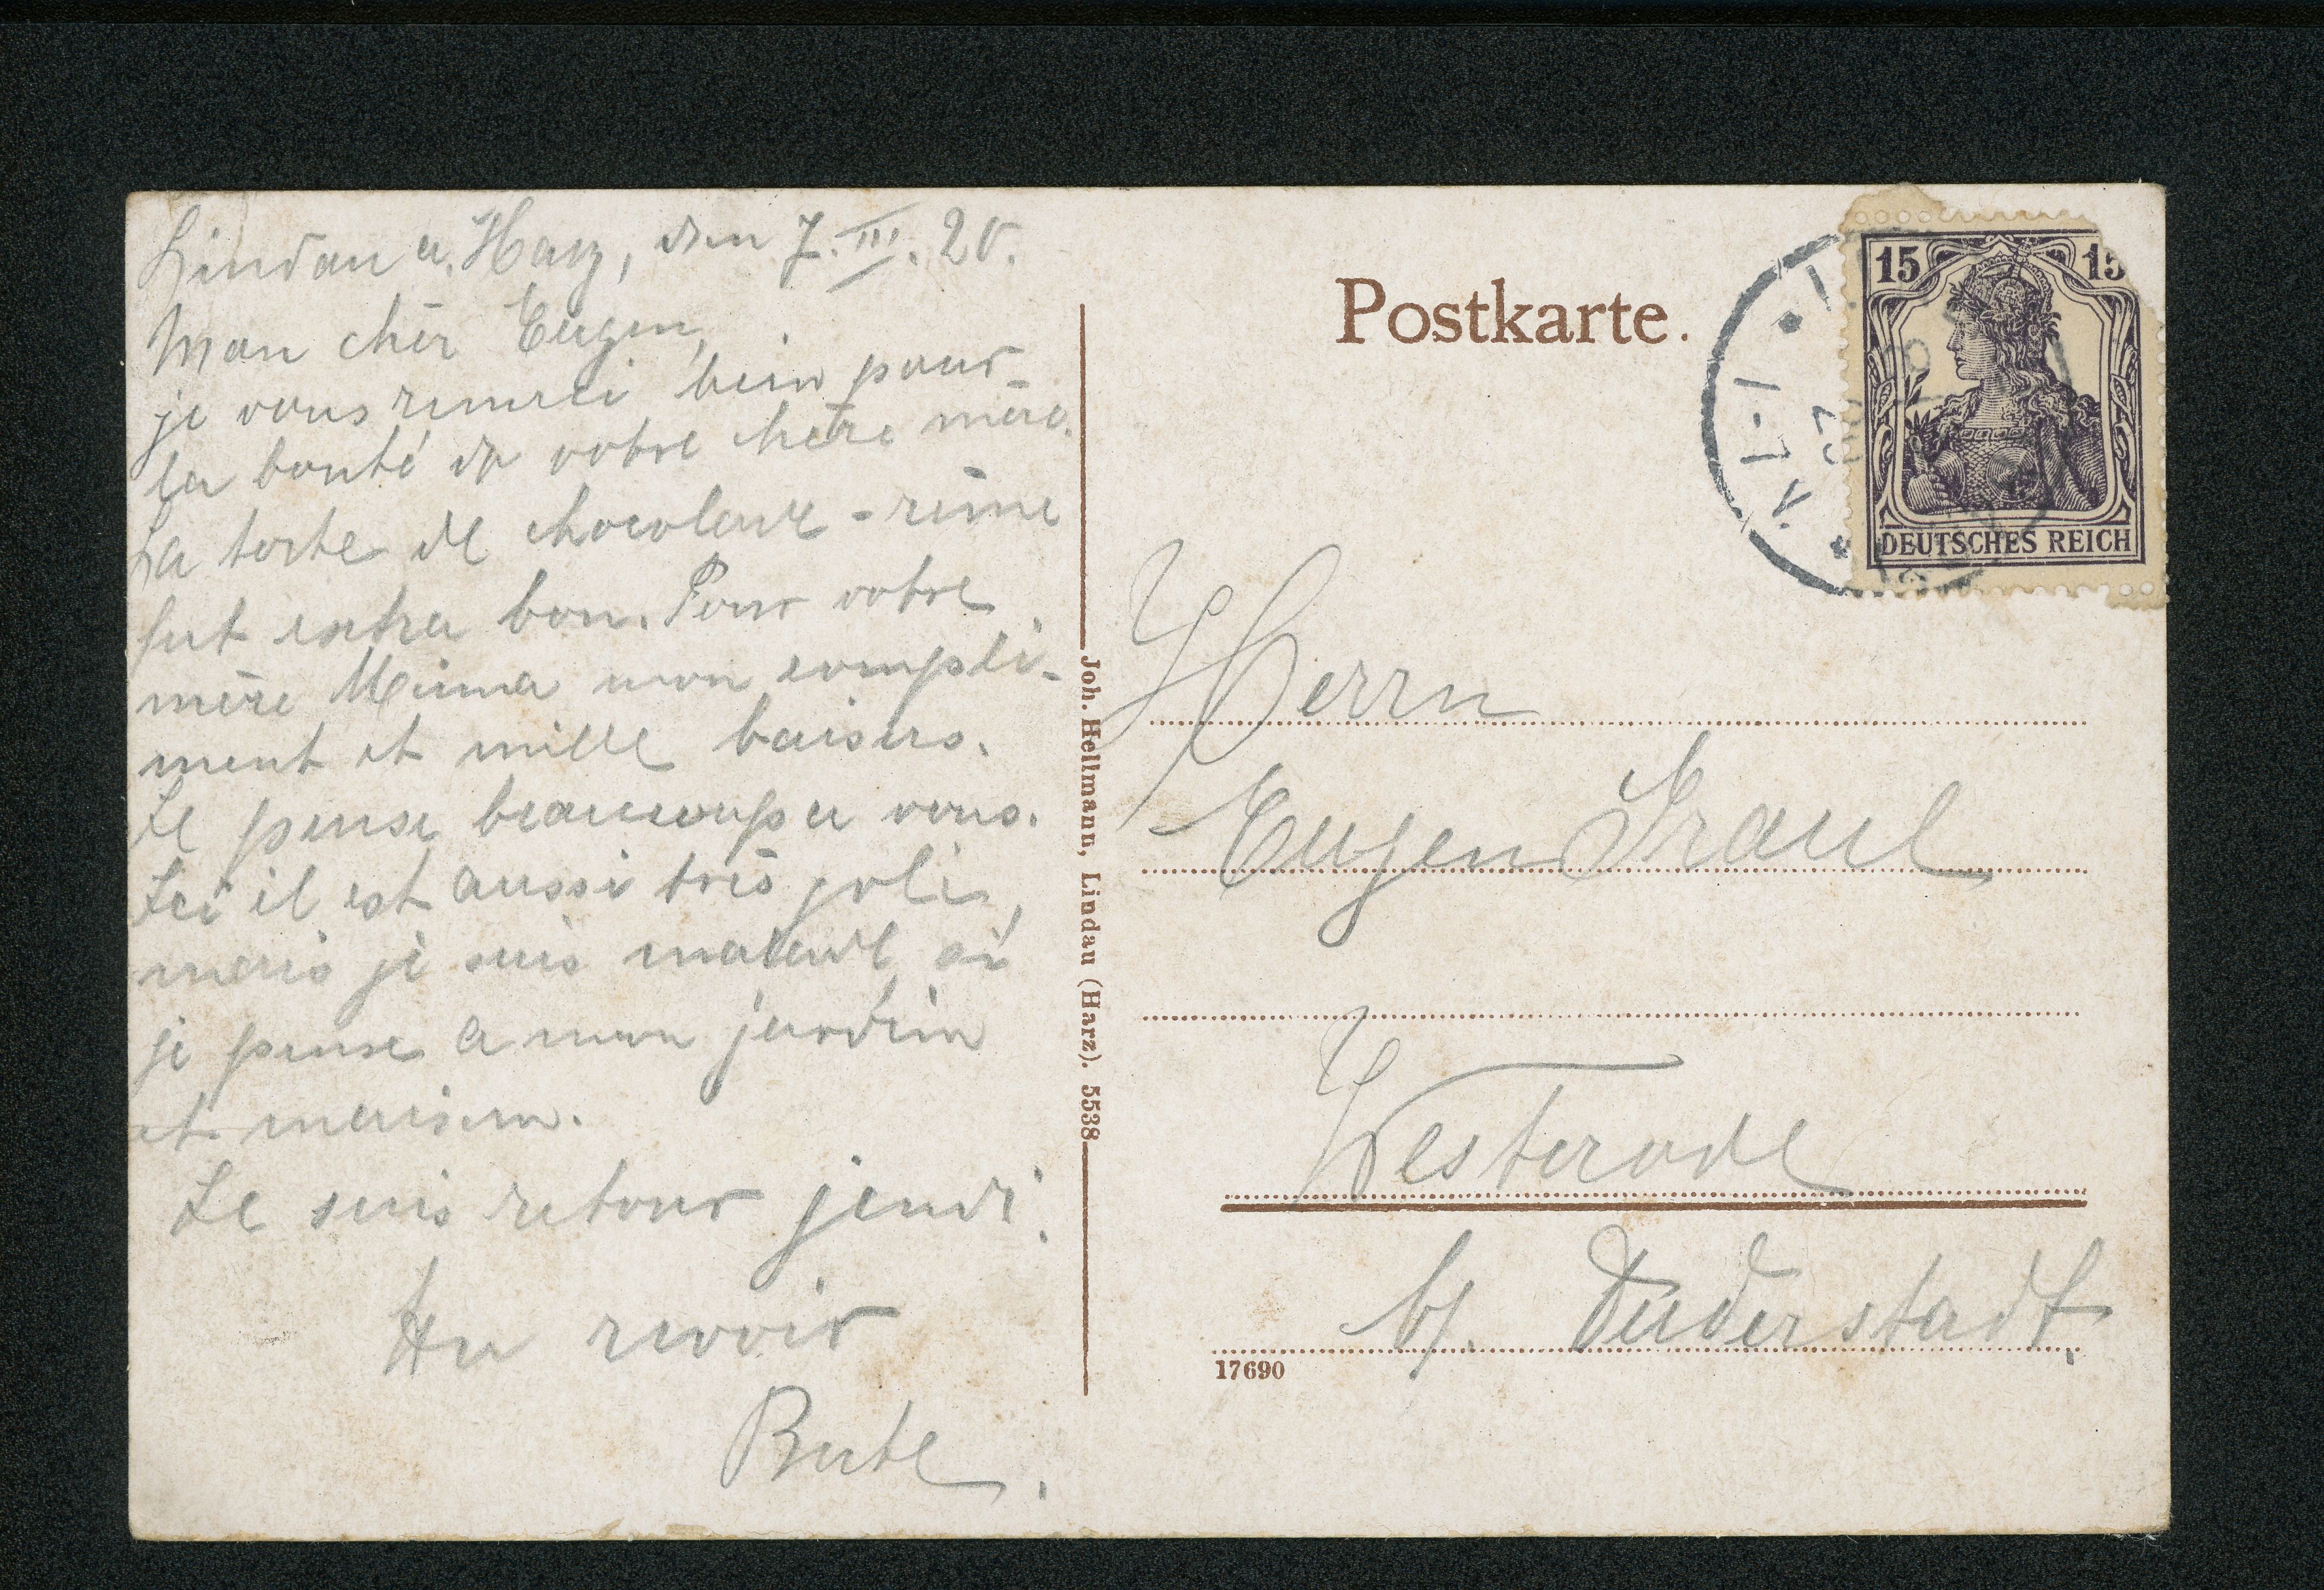 Lindau a. Harz, den 7. III. 20.
Mon cher Eugen,
je vous remerci bein pour
la bonté de votre chère mère.
La torte de chocolade-rème
fut extra bon. Pour votre
mère Minna mon compli-
ment et mille baisers.
Je pense beaucoup a vous.
Ici il est aussi très joli,
mais je suis malade, si
je pense a mon jardin
et maison.
Je suis retour jeudi.
Au revoir
Bute.
Postkarte.
15 15
DEUTSCHES REICH
Joh. Hellmann, Lindau (Harz). 5538
Herrn
Eugen Iraul
Westerode
b/. Duderstadt.
17690